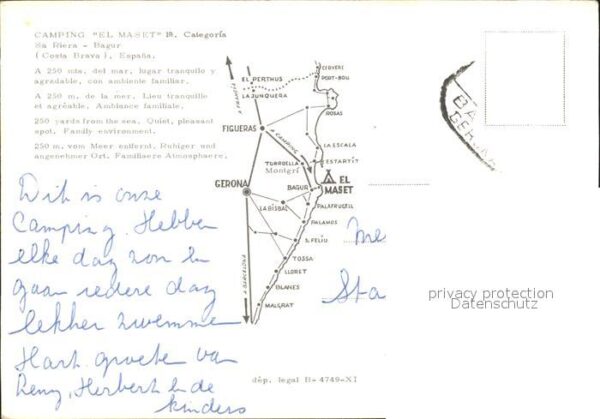 CAMPING "EL MASET" 1ª. Categoría
Sa Riera - Bagur
(Costa Brava), España.
A 250 mts. del mar, lugar tranquilo y
agradable, con ambiente familiar.
A 250 m. de la mer. Lieu tranquille
et agréable. Ambiance familiale.
250 yards from the sea. Quiet, pleasant
spot. Family environment.
250 m. vom Meer entfernt. Ruhiger und
angenehmer Ort. Familiaere Atmosphaere.
Dit is onze
Camping. Hebben
elke dag zon en
gaan iedere dag
lekker zwemme
Hart. groeten van
Leny, Herbert en de
kinders
A FRANCIA
EL PERTHUS
LA JUNQUERA
CERVERE
PORT-BOU
ROSAS
FIGUERAS
A CAMPING
LA ESCALA
ESTARTIT
TORROELLA
Montgrí
GERONA
BAGUR
EL
MASET
LA BISBAL
PALAFRUGELL
PALAMOS
S. FELIU
TOSSA
LLORET
BLANES
MALGRAT
A BARCELONA
dép. legal B-4749-XI
Me
Sta
privacy protection
Datenschutz